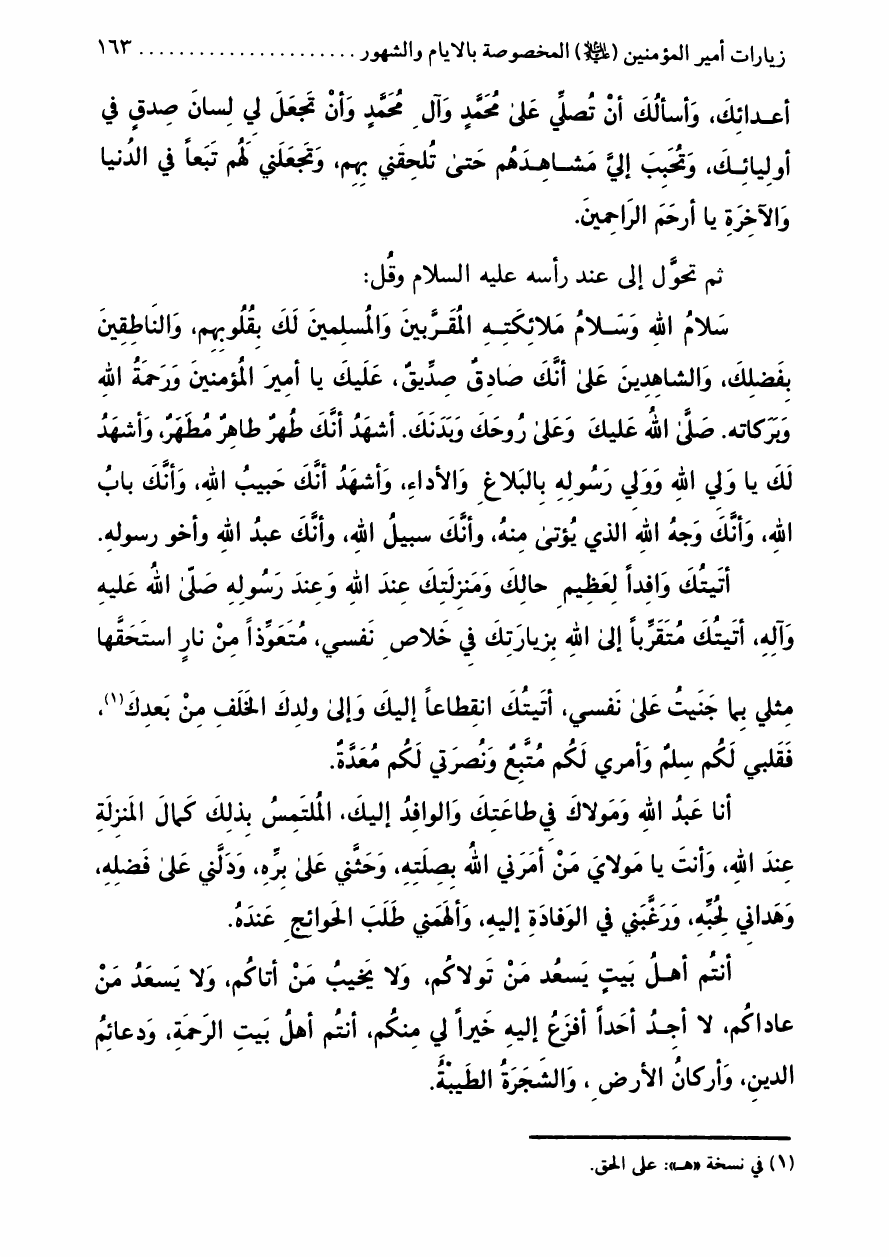 زيارات أمير المؤمنين (عليه السلام) المخصوصة بالايام والشهور ...................... ١٦٣
أعـدائِكَ، وَأسألُكَ أنْ تُصلِّي عَلىٰ مُحَمَّدٍ وَآلِ مُحَمَّدٍ وَأنْ تَجعَلَ لي لِسانَ صِدقٍ في
أوليائِـكَ، وَتُحَبِبَ إليَّ مَشـاهِـدَهُم حَتىٰ تُلحِقَني بِهِم، وَتَجعَلَني لَهُم تَبَعاً في الدُنيا
وَالآخِرَةِ يا أرحَمَ الرَاحِمينَ.
ثم تحوَّل إلى عند رأسه عليه السلام وقُل:
سَلامُ الله وَسَـلامُ مَلائِكَتِـهِ المُقَـرَّبينَ وَالمُسلِمينَ لَكَ بِقُلُوبِهِم، وَالنَاطِقينَ
بِفَضلِكَ، وَالشاهِدِينَ عَلىٰ أنَّكَ صادِقٌ صِدِّيقٌ، عَلَيكَ يا أميرَ المُؤمنينَ وَرَحمَةُ الله
وَبَرَكاته. صَلَّىٰ اللهُ عَليكَ وَعَلىٰ رُوحِكَ وَبَدَنَكَ. أشهَدُ أنَّكَ طُهرٌ طاهِرٌ مُطَهَرٌ، وَأشهَدُ
لَكَ يا وَلي الله وَوَلي رَسُولِهِ بِالبَلاغِ وَالأداءِ، وَأشهَدُ أنَّكَ حَبيبُ الله، وَأنَّكَ بابُ
الله، وَأنَّكَ وَجهُ الله الذي يُؤتىٰ مِنهُ، وأنَّكَ سبيلُ الله، وأنَّكَ عبدُ الله وأخو رسولِهِ.
أتَيتُكَ وَافِداً لِعَظِيمِ حالِكَ وَمَنزِلَتِكَ عِندَ الله وَعِندَ رَسُولِهِ صَلّىٰ اللهُ عَليهِ
وَآلِهِ، أتَيتُكَ مُتَقَرِّباً إلىٰ الله بِزيارَتِكَ في خَلاصِ نَفسي، مُتَعَوِّذاً مِنْ نارٍ استَحَقَّها
مِثلي بِما جَنَيتُ عَلىٰ نَفسي، أتَيتُكَ انقِطاعاً إليكَ وَإلىٰ ولدِكَ الخَلَفِ مِنْ بَعدِكَ(١)،
فَقَلبي لَكُم سِلمٌ وَأمري لَكُم مُتَّبِعٌ وَنُصرَتي لَكُم مُعَدَّةٌ.
أنا عَبدُ الله وَمَولاكَ في طاعَتِكَ وَالوافِدُ إليكَ، المُلتَمِسُ بِذلِكَ كَمالَ المَنزِلَةِ
عِندَ الله، وَأنتَ يا مَولايَ مَنْ أمَرَني اللهُ بِصِلَتِهِ، وَحَثَّني عَلىٰ بِرِّهِ، وَدَلَّني عَلىٰ فَضلِهِ،
وَهَداني لِحُبِّهِ، وَرَغَّبَني في الوَفادَةِ إليهِ، وَألهَمَني طَلَبَ الحَوائِجِ عَندَهُ.
أنتُم أهـلُ بَيتٍ يَسعُد مَنْ تَولاكُم، وَلا يَخيبُ مَنْ أتاكُم، وَلا يَسعَدُ مَنْ
عاداكُم، لا أجِـدُ أحَداً أفزَعُ إليهِ خَيراً لي مِنكُم، أنتُم أهلُ بَيتِ الرَحمَةِ، وَدعائِمُ
الدينِ، وَأركانُ الأرضِ ، وَالشَجَرَةُ الطَيبْةُ.
(١) في نسخة «هـ»: على الحق.